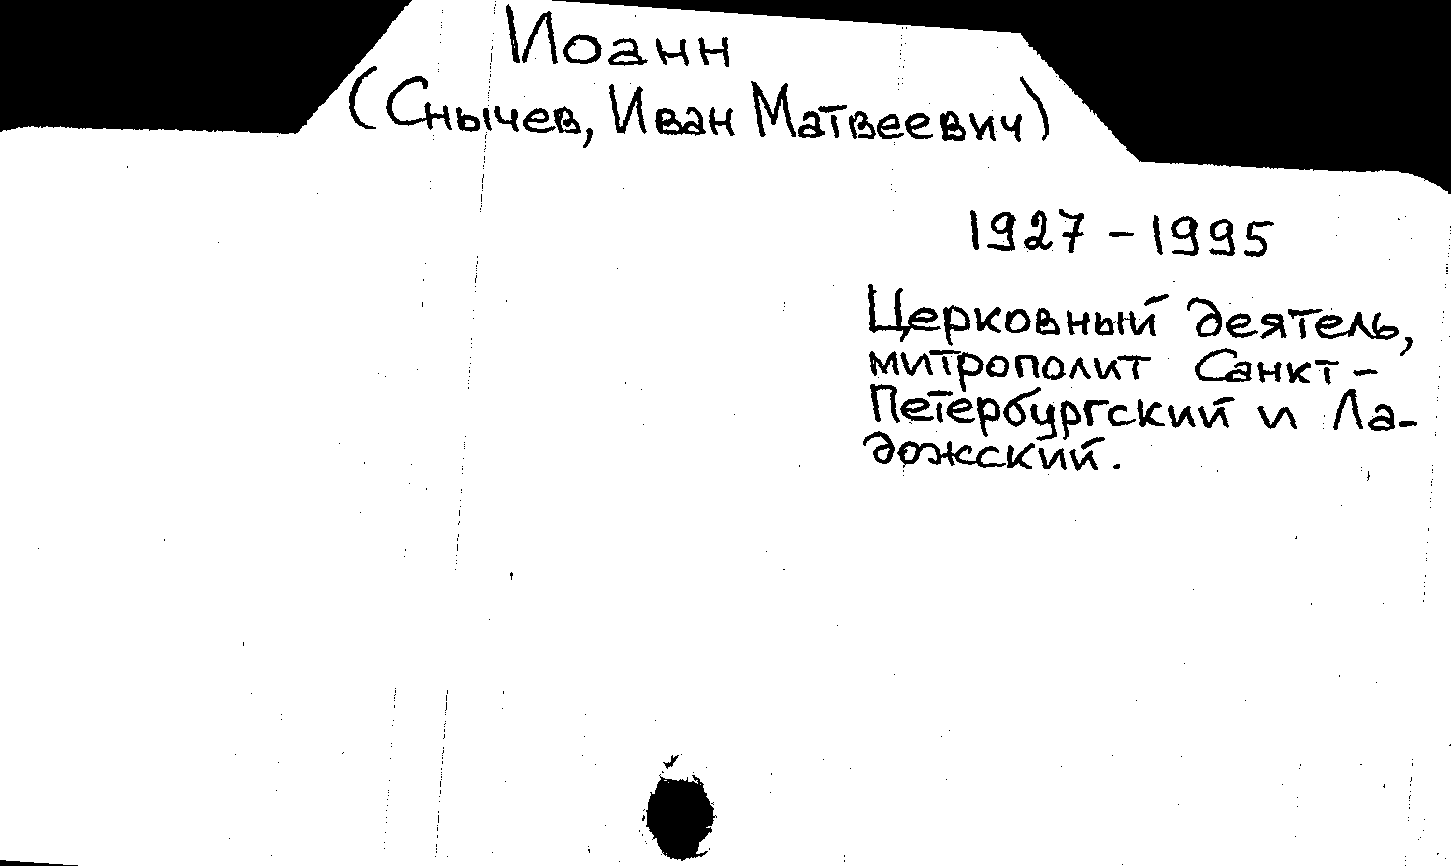 Иоанн
(Снычев, Иван Матвеевич)
1927 - 1995
Церковный деятель,
митрополит Санкт-
Петербургский и Ла-
дожский.